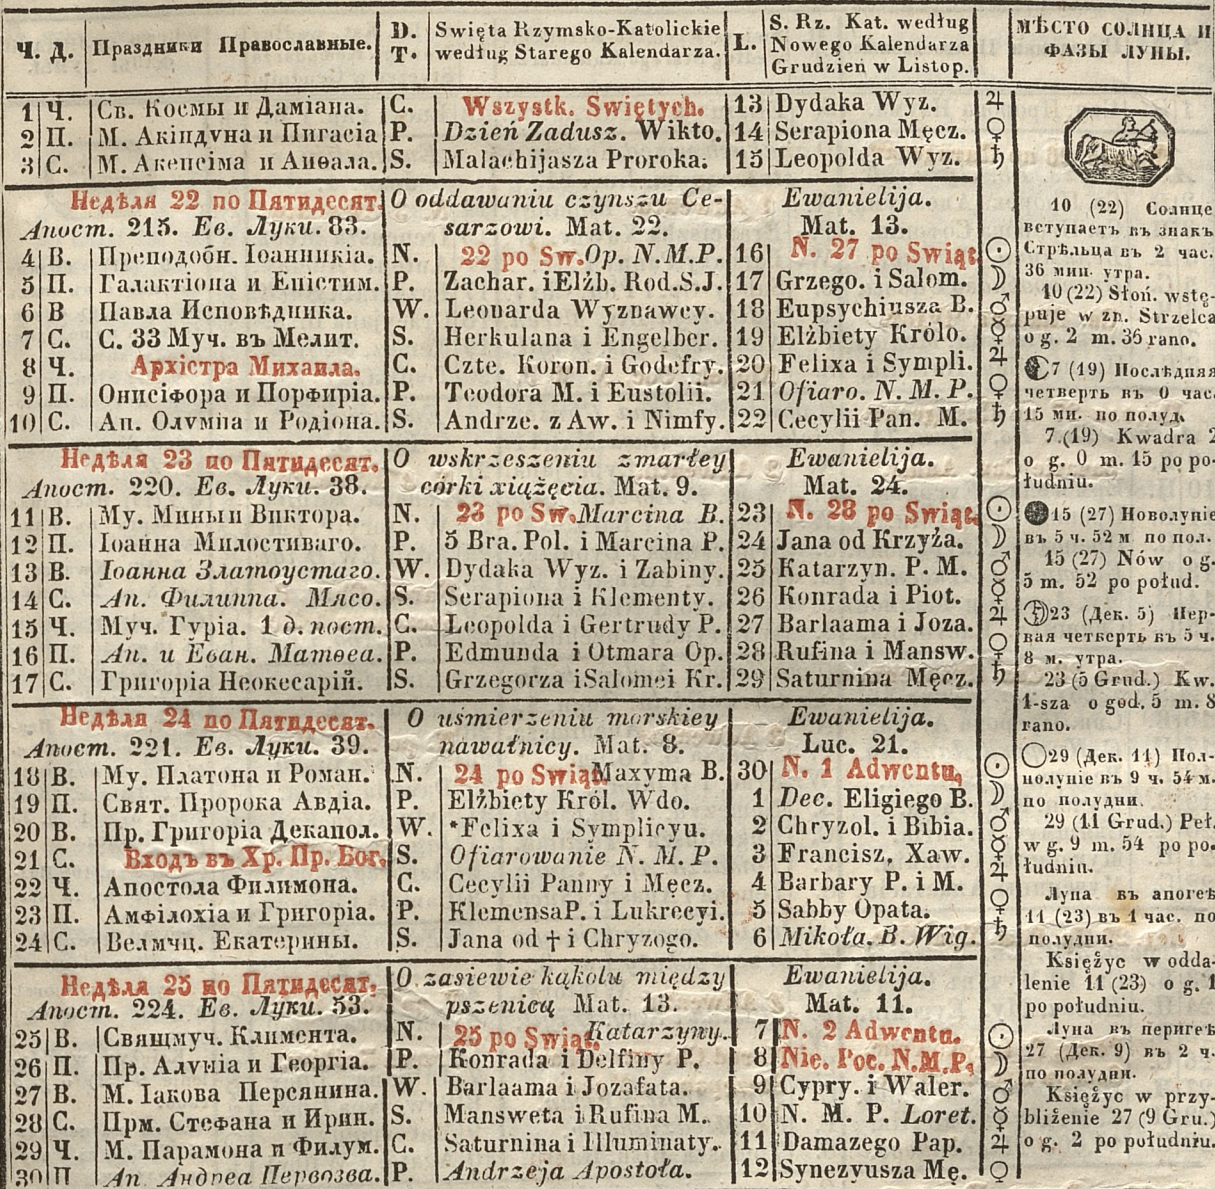 Ч. Д. Праздники Православные. D. T. Swięta Rzymsko-Katolickie według Starego Kalendarza. L. S. Rz. Kat. według Nowego Kalendarza Grudzień w Listop. МѢСТО СОЛНЦА И ФАЗЫ ЛУНЫ.
1 Ч. Св. Космы и Даміана. C. Wszystk. Swiętych. 13 Dydaka Wyz. ♃
2 П. М. Акіндѵна и Пигасіа P. Dzień Zadusz. Wikto. 14 Serapiona Męcz. ♀
3 С. М. Акепсіма и Аиѳала. S. Malachijasza Proroka. 15 Leopolda Wyz. ♄
Недѣля 22 по Пятидесят. O oddawaniu czynszu Ce- Ewanielija.
Апост. 215. Ев. Луки. 83. sarzowi. Mat. 22. Mat. 13.
4 В. Преподобн. Іоанникіа. N. 22 po Sw. Op. N.M.P. 16 N. 27 po Swiąt. ☉
5 П. Галактіона и Епістим. P. Zachar. i Elżb. Rod.S.J. 17 Grzego. i Salom. ☽
6 В Павла Исповѣдника. W. Leonarda Wyznawcy. 18 Eupsychiusza B. ♂
7 С. С. 33 Муч. въ Мелит. S. Herkulana i Engelber. 19 Elżbiety Królo. ☿
8 Ч. Архістра Михаила. C. Czte. Koron. i Godefry. 20 Felixa i Sympli. ♃
9 П. Онисіфора и Порфиріа. P. Teodora M. i Eustolii. 21 Ofiaro. N. M. P. ♀
10 С. Ап. Олѵмпа и Родіона. S. Andrze. z Aw. i Nimfy. 22 Cecylii Pan. M. ♄
Недѣля 23 по Пятидесят. O wskrzeszeniu zmarłey Ewanielija.
Апост. 220. Ев. Луки. 38. córki xiążęcia. Mat. 9. Mat. 24.
11 В. Му. Мины и Виктора. N. 23 po Sw. Marcina B. 23 N. 28 po Swiąt. ☉
12 П. Іоанна Милостиваго. P. 5 Bra. Pol. i Marcina P. 24 Jana od Krzyża. ☽
13 В. Іоанна Златоустаго. W. Dydaka Wyz. i Zabiny. 25 Katarzyn. P. M. ♂
14 С. Ап. Филиппа. Мясо. S. Serapiona i Klementy. 26 Konrada i Piot. ☿
15 Ч. Муч. Гуріа. 1 д. пост. C. Leopolda i Gertrudy P. 27 Barlaama i Joza. ♃
16 П. Ап. и Еван. Матѳеа. P. Edmunda i Otmara Op. 28 Rufina i Mansw. ♀
17 С. Григоріа Неокесарій. S. Grzegorza i Salomei Kr. 29 Saturnina Męcz. ♄
Недѣля 24 по Пятидесят. O uśmierzeniu morskiey Ewanielija.
Апост. 221. Ев. Луки. 39. nawałnicy. Mat. 8. Luc. 21.
18 В. Му. Платона и Роман. N. 24 po Swiąt. Maxyma B. 30 N. 1 Adwentu. ☉
19 П. Свят. Пророка Авдіа. P. Elżbiety Król. Wdo. 1 Dec. Eligiego B. ☽
20 В. Пр. Григоріа Декапол. W. *Felixa i Symplicyu. 2 Chryzol. i Bibia. ♂
21 С. Входъ въ Хр. Пр. Бог. S. Ofiarowanie N. M. P. 3 Francisz. Xaw. ☿
22 Ч. Апостола Филимона. C. Cecylii Panny i Męcz. 4 Barbary P. i M. ♃
23 П. Амфілохіа и Григоріа. P. Klemensa P. i Lukrecyi. 5 Sabby Opata. ♀
24 С. Велмчц. Екатерины. S. Jana od † i Chryzogo. 6 Mikoła. B. Wig. ♄
Недѣля 25 по Пятидесят. O zasiewie kąkolu między Ewanielija.
Апост. 224. Ев. Луки. 53. pszenicą Mat. 13. Mat. 11.
25 В. Свящмуч. Климента. N. 25 po Swiąt. Katarzyny. 7 N. 2 Adwentu. ☉
26 П. Пр. Алѵпіа и Георгіа. P. Konrada i Delfiny P. 8 Nie. Poc. N.M.P. ☽
27 В. М. Іакова Персянина. W. Barlaama i Jozafata. 9 Cypry. i Waler. ♂
28 С. Прм. Стефана и Ирин. S. Mansweta i Rufina M. 10 N. M. P. Loret. ☿
29 Ч. М. Парамона и Филум. C. Saturnina i Illuminaty. 11 Damazego Pap. ♃
30 П Ап. Андреа Первозва. P. Andrzeja Apostoła. 12 Synezyusza Mę. ♀
10 (22) Солнце
вступаетъ въ знакъ
Стрѣльца въ 2 час.
36 мин. утра.
10 (22) Słoń. wstę-
puje w zn. Strzelca
o g. 2 m. 36 rano.
7 (19) Послѣдняя
четверть въ 0 час.
15 ми. по полуд.
7.(19) Kwadra 2
o g. 0 m. 15 po po-
łudniu.
15 (27) Новолуніе
въ 5 ч. 52 м по пол.
15 (27) Nów o g.
5 m. 52 po połud.
23 (Дек. 5) Пер-
вая четверть въ 5 ч.
8 м. утра.
23 (5 Grud.) Kw.
1-sza o god. 5 m. 8
rano.
29 (Дек. 11) Пол-
нолуніе въ 9 ч. 54 м.
по полудни.
29 (11 Grud.) Peł.
w g. 9 m. 54 po po.
łudniu.
Луна въ апогеѣ
11 (23) въ 1 час. по
полудни.
Księżyc w odda-
lenie 11 (23) o g. 1
po południu.
Луна въ перигеѣ
27 (Дек. 9) въ 2 ч.
по полудни.
Księżyc w przy-
bliżenie 27 (9 Gru.)
o g. 2 po południu.